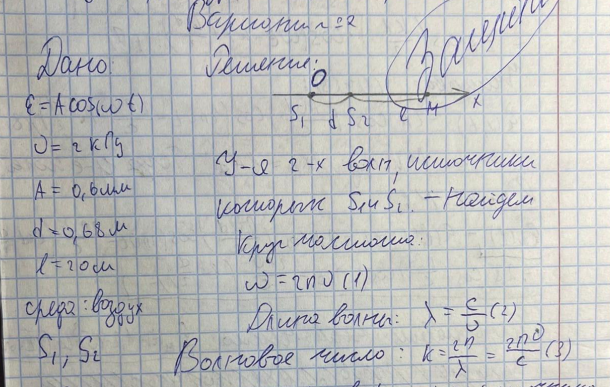 Вариант №2
Дано:
ξ=Acos(ωt)
ν=2кГц
A=0,6мм
d=0,68м
l=20м
среда: воздух
S₁, S₂
Решение:
O
S₁ d S₂ l M x
У-я 2-х волн, источники
которых S₁ и S₂. – Найдем
Круг частота:
ω=2πν (1)
Длина волны: λ = c/ν (2)
Волновое число: k = 2π/λ = 2πν/c (3)